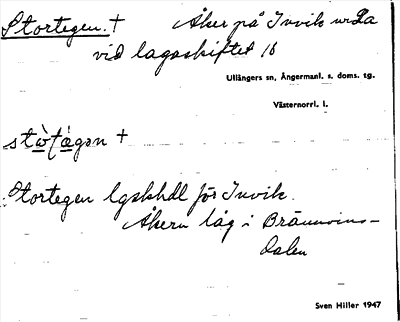 Stortegen. † Åker på Invik nr 2a
vid lagaskiftet 16
Ullångers sn, Ångermanl. s. doms. tg.
Västernorrl. l.
stò̱ṭá̱gən †
Stortegen lgskhdl för Invik.
Åkern låg i Brännvins-
dalen
Sven Hiller 1947